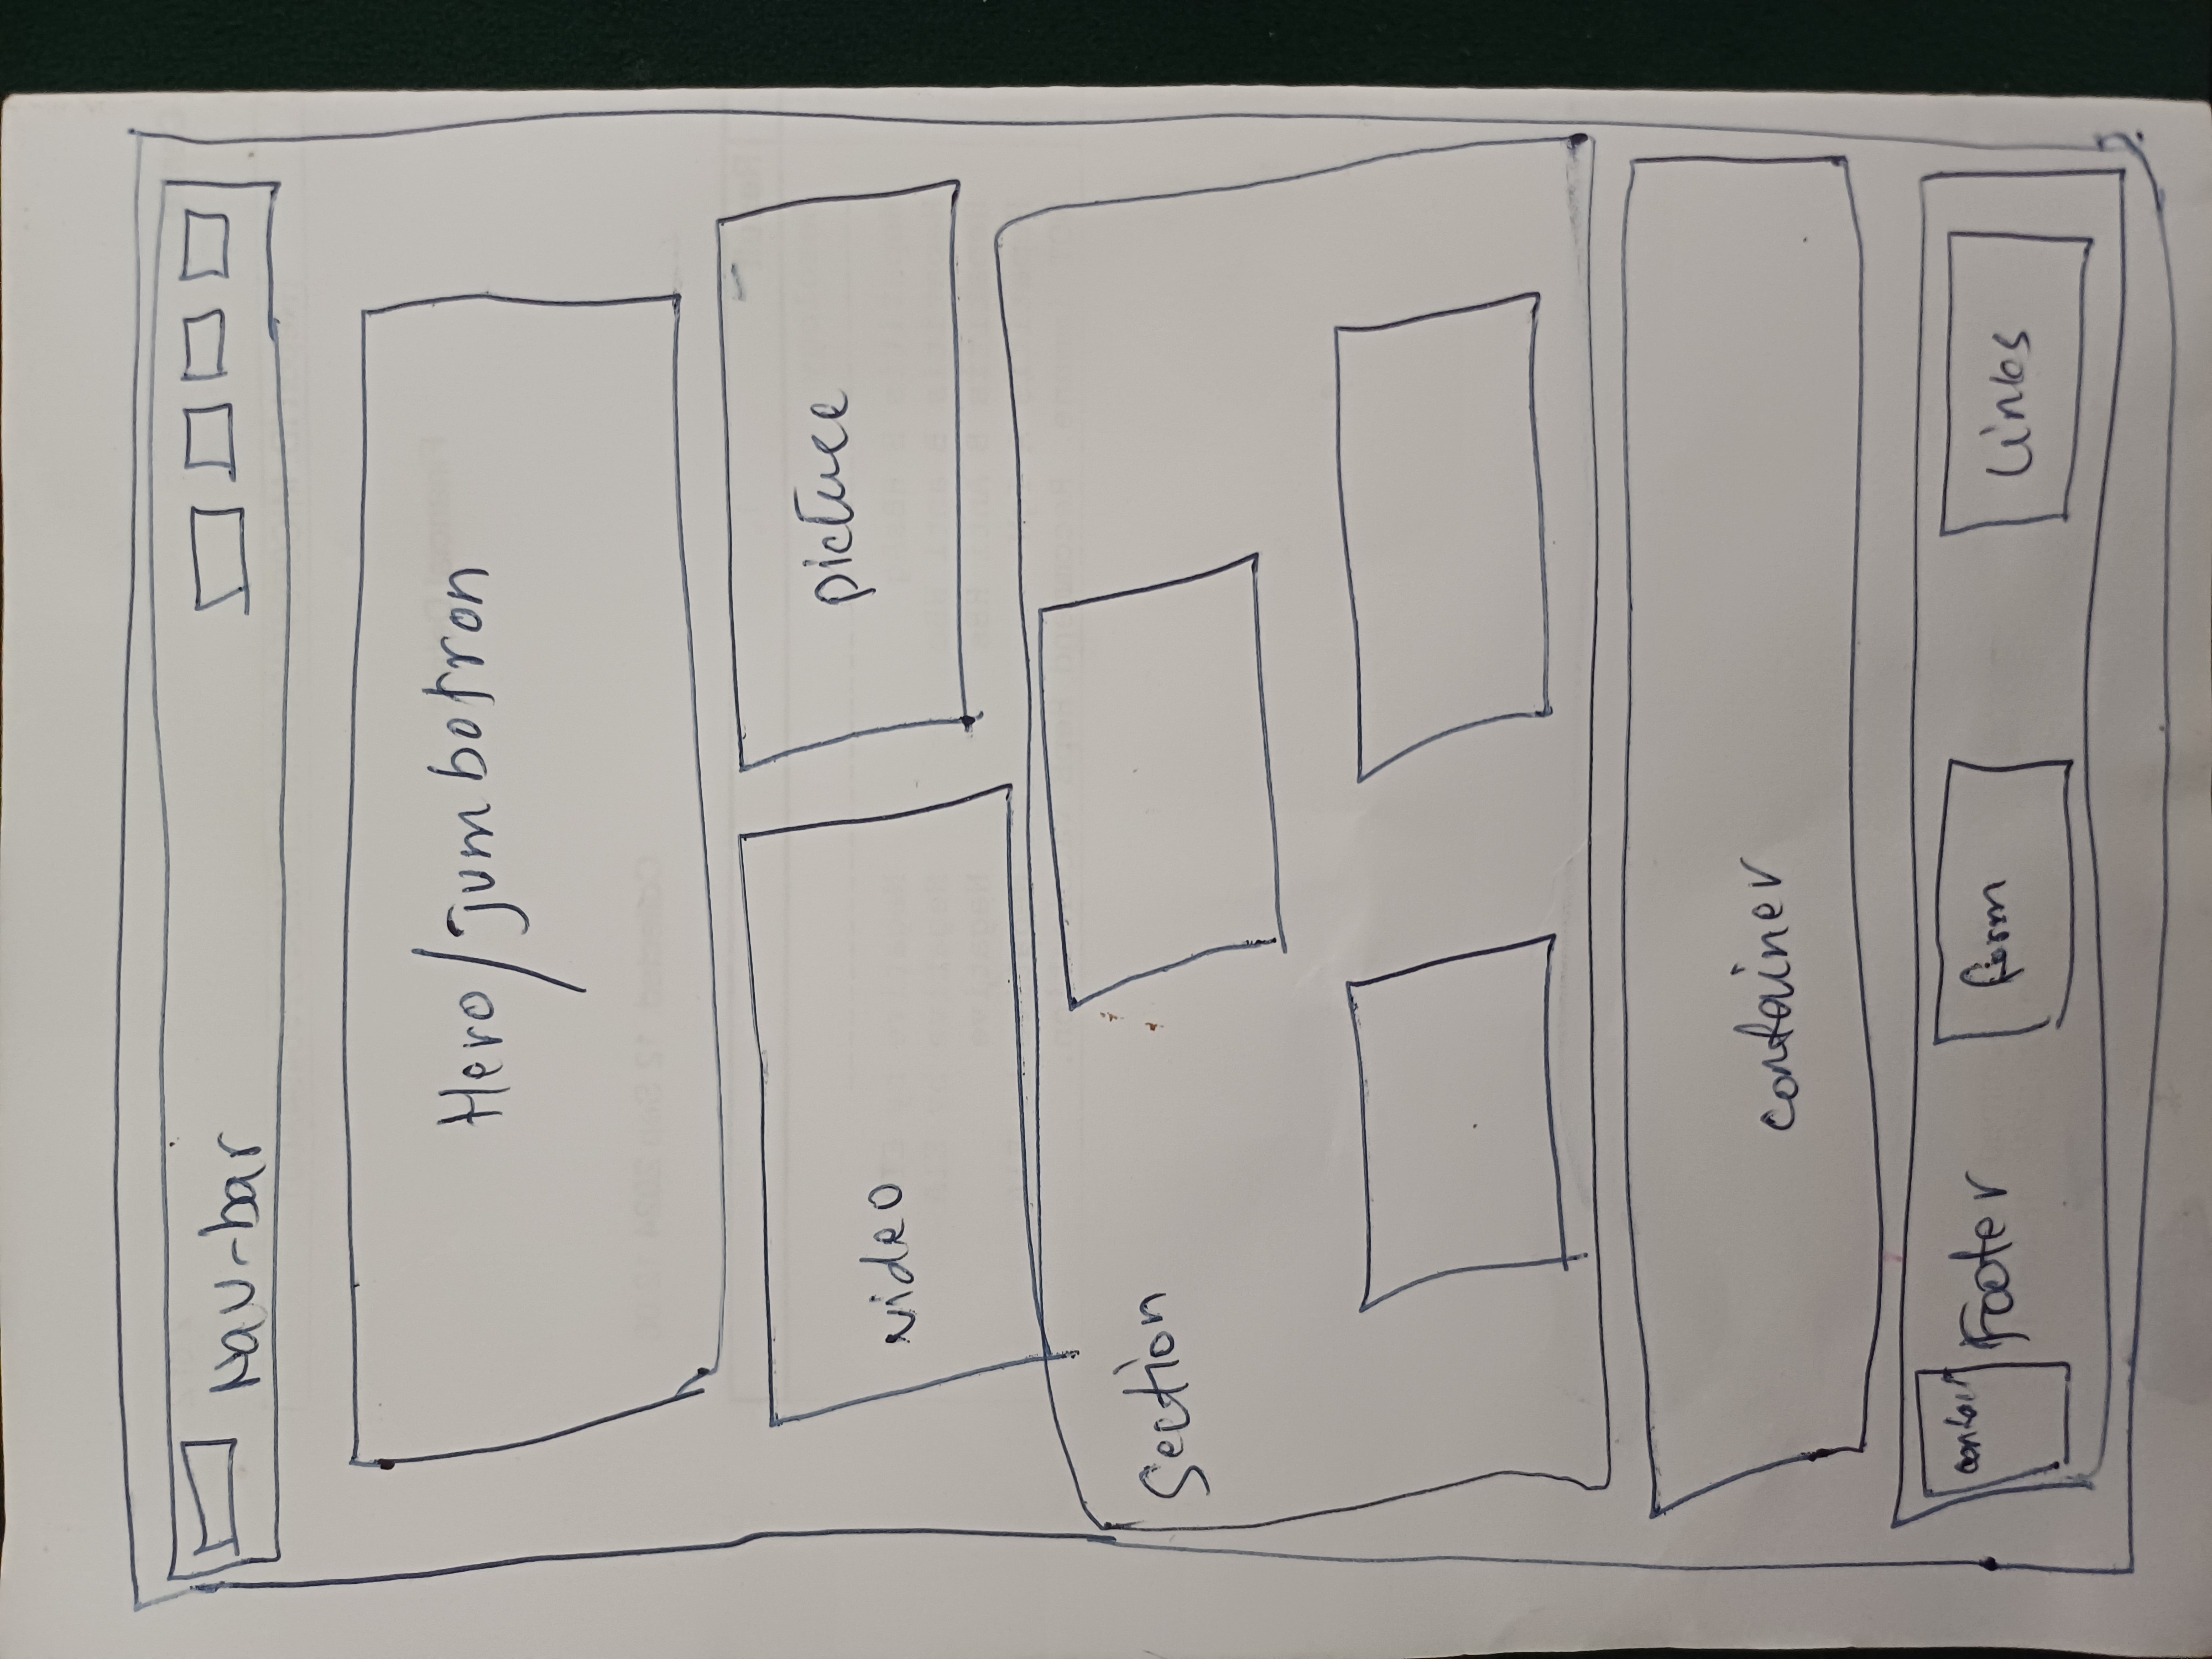 Nav-bar
Hero/jumbotron
video
picture
Section
container
contact
Footer
form
Links